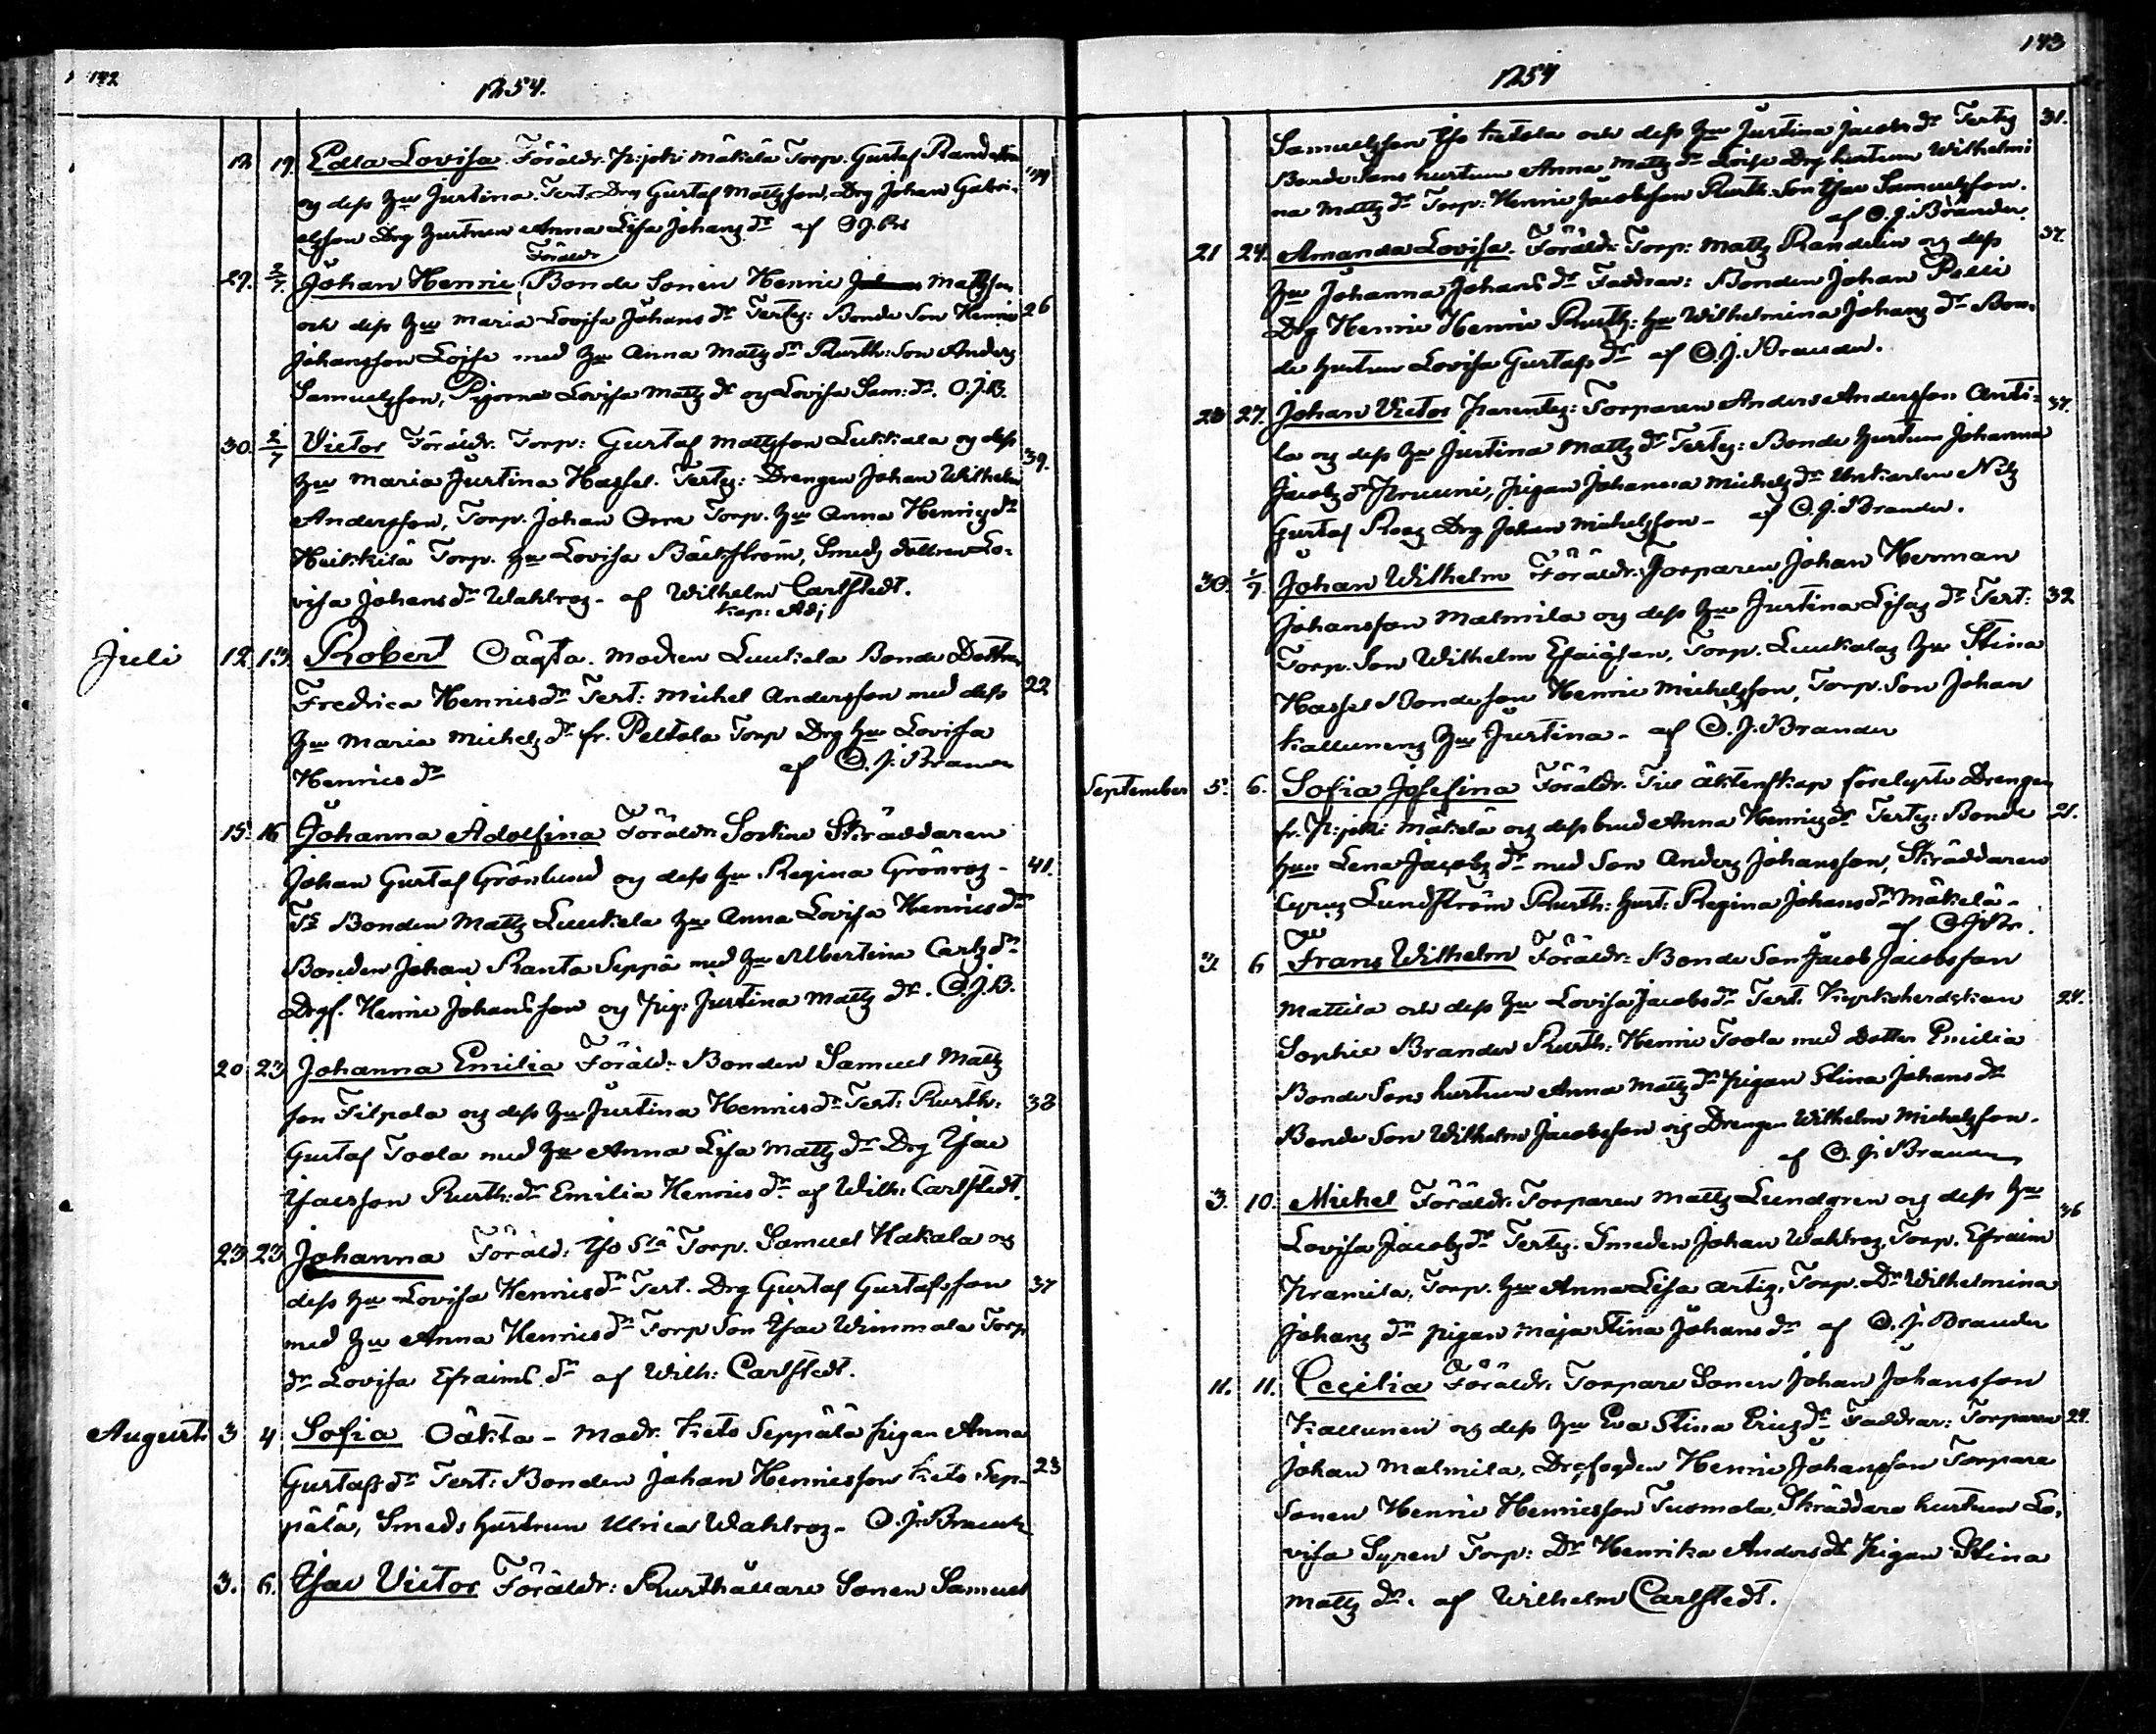 142
1854.
12 19 Edla Lovisa. Föräldr. P:joki Mäkelä Torp. Gustaf Randelin
og dess Hu Justina. Test. Drg Gustaf Mattsson, Drg Johan Gabri-
elsson Drg hustrun Anna Lisa Johansdr af O J. Br
Föräldr
27. 2/7. Johan Henric, Bonde Sonen Henric Mattsson
och dess Hu Maria Lovisa Johans dr Testes: Bonde Son Henric 26
Johansson Loise med Hu Anna Matts dr Rusth: Son Anders
Samuelsson, Pigorna Lovisa Matts dr og Lovisa Sam: dr. O.J.B.
30. 2/7 Victor Föräldr. Torp: Gustaf Mattsson Luttkala og dess 39.
Hu Maria Justina Hassel. Testes: Drengen Johan Wilhelm
Andersson, Torp. Johan Orra Torp. Hu Anna Henrics dr
Heikkilä Torp. Hu Lovisa Bäckström, Smeds dottren Lo-
visa Johans dr Wahlros - af Wilhelm Carlstedt.
Kap: Adj
Juli 12. 13 Robert Oägta. Modren Luukala Bonde Dottren
Fredrica Henrics dr Test: Michel Andersson med dess 22
Hu Maria Michels dr fr. Peltola Torp Drg Hu Lovisa
Henrics dr af O. J. Brander
15. 16 Johanna Adolfina Föräldr: Sockne Skräddaren
Johan Gustaf Grönlund og dess Hu Regina Grönroos - 41.
Ts Bonden Matts Luukala Hu Anna Lovisa Henrics dr
Bonden Johan Ranta Seppä med Hu Albertina Carls dr
Drgf. Henric Johansson og Pig: Justina Matts dr. O.J.B.
20 23 Johanna Emilia Föräld: Bonden Samuel Matts
son Filpola og dess Hu Justina Henrics dr Test: Rusth: 38
Gustaf Toola med Hu Anna Lisa Matts dr Drg Isac
Isacsson Rusth: dr Emilia Henrics dr af Wilh: Carlstedt.
23 23 Johanna Föräld: Torp. Samuel Kakala og
dess Hu Lovisa Henrics dr Test. Drg Gustaf Gustafsson 37
med Hu Anna Henrics dr Torp Son Isac Wimmala Torp
dr Lovisa Efraims dr af Wilh: Carlstedt.
August. 3 4 Sofia Oäkta - Modr. Kieto Seppälä Pigan Anna
Gustafs dr Test: Bonden Johan Henricsson Kieto Sep- 23
pälä, Smeds hustrun Ulrica Wahlros - O. J. Brander
3. 6. Isac Victor Föräldr: Rusthållare Sonen Samuel
143
1854
Samuelsson Ketola och dess Hu Justina Jacobs dr Testes 31.
Bonde Sons hustrun Anna Matts dr Loise Drg hustrun Wilhelmi
na Matts dr Torp: Henric Jacobsson Rusth: Son Isac Samuelsson.
af O. J. Brander.
21 24. Amanda Lovisa. Föräldr: Torp: Matts Randelin og dess 37.
Hu Johanna Johans dr Faddrar: Bonden Johan Palli
Drg Henric Henric Rusth: Hu Wilhelmina Johans dr Bon-
de hustrun Lovisa Gustafs dr af O. J. Brander.
23 27. Johan Victor Parentes: Torparen Anders Andersson Anti- 37.
la og dess Hu Justina Matts dr Testes: Bonde hustrun Johanna
Jacobs dr Pruuni, Pigan Johanna Michels dr Ynkarlen Nils
Gustaf Roos Drg Johan Michelsson - af O. J. Brander.
30. 1/9. Johan Wilhelm Föräldr: Torparen Johan Herman
Johansson Malmila og dess Hu Justina Lisas dr Test: 32
Torp. Son Wilhelm Esaiasson, Torp. Luukalas Hu Stina
Hassel Bonde son Henric Michelsson, Torp. Son Johan
Kallunens Hu Justina - af O. J. Brander
September 5. 6. Sofia Josefina Föräldr. Till äktenskap förelyste Drengen
fr. P:joki Mäkelä og dess brud Anna Henrics dr Testes: Bonde 21.
Hun Lena Jacobs dr med Son Anders Johansson, Skräddaren
Cyrus Lundström Rusth: Hust: Regina Johans dr Mäkelä -
af O J Br.
3. 6 Frans Wilhelm Föräldr: Bonde Son Jacob Jacobsson
Mattila och dess Hu Lovisa Jacobs dr Test. Kyrkoherdskan 24.
Sophie Brander Rusth: Henric Toola med Dotter Emilia
Bonde Sons hustrun Anna Matts dr Pigan Stina Johans dr
Bonde Son Wilhelm Jacobsson og Drengen Wilhelm Michelsson.
af O. J. Brander
3. 10. Michel Föräldr. Torparen Matts Lundgren og dess Hu 36
Lovisa Jacobs dr Testes. Smeden Johan Wahlros, Torp. Efraim
Pramila, Torp. Hu Anna Lisa Artis, Torp. Dr Wilhelmina
Johans dr Pigan Maja Stina Johans dr af O. J. Brander
11. 11. Cecilia Föräldr: Torpare Sonen Johan Johansson
Kallunen og dess Hu Eva Stina Erics dr Faddrar: Torparen 24.
Johan Malmila, Drgfogden Henric Johansson Torpare
Sonen Henric Henricsson Tuomola, Skräddare hustrun Lo-
visa Syren Torp: Dr Henrika Anders dr Pigan Stina
Matts dr. af Wilhelm Carlstedt.